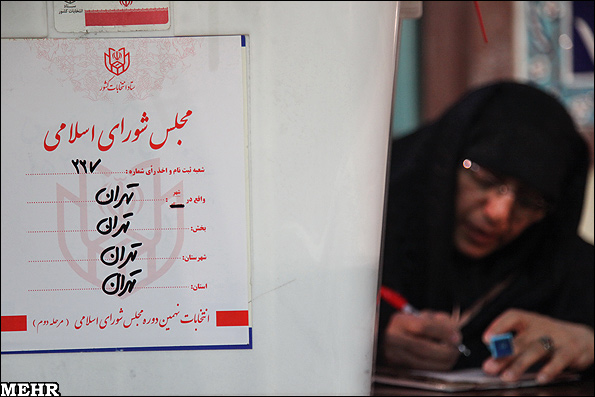 ستاد انتخابات کشور
ستاد انتخابات کشور
مجلس شورای اسلامی
شعبه ثبت نام و اخذ رأی شماره: ۲۲۷
واقع در شهر : تهران
بخش: تهران
شهرستان: تهران
استان: تهران
انتخابات نهمین دوره مجلس شورای اسلامی ( مرحله دوم )
MEHR